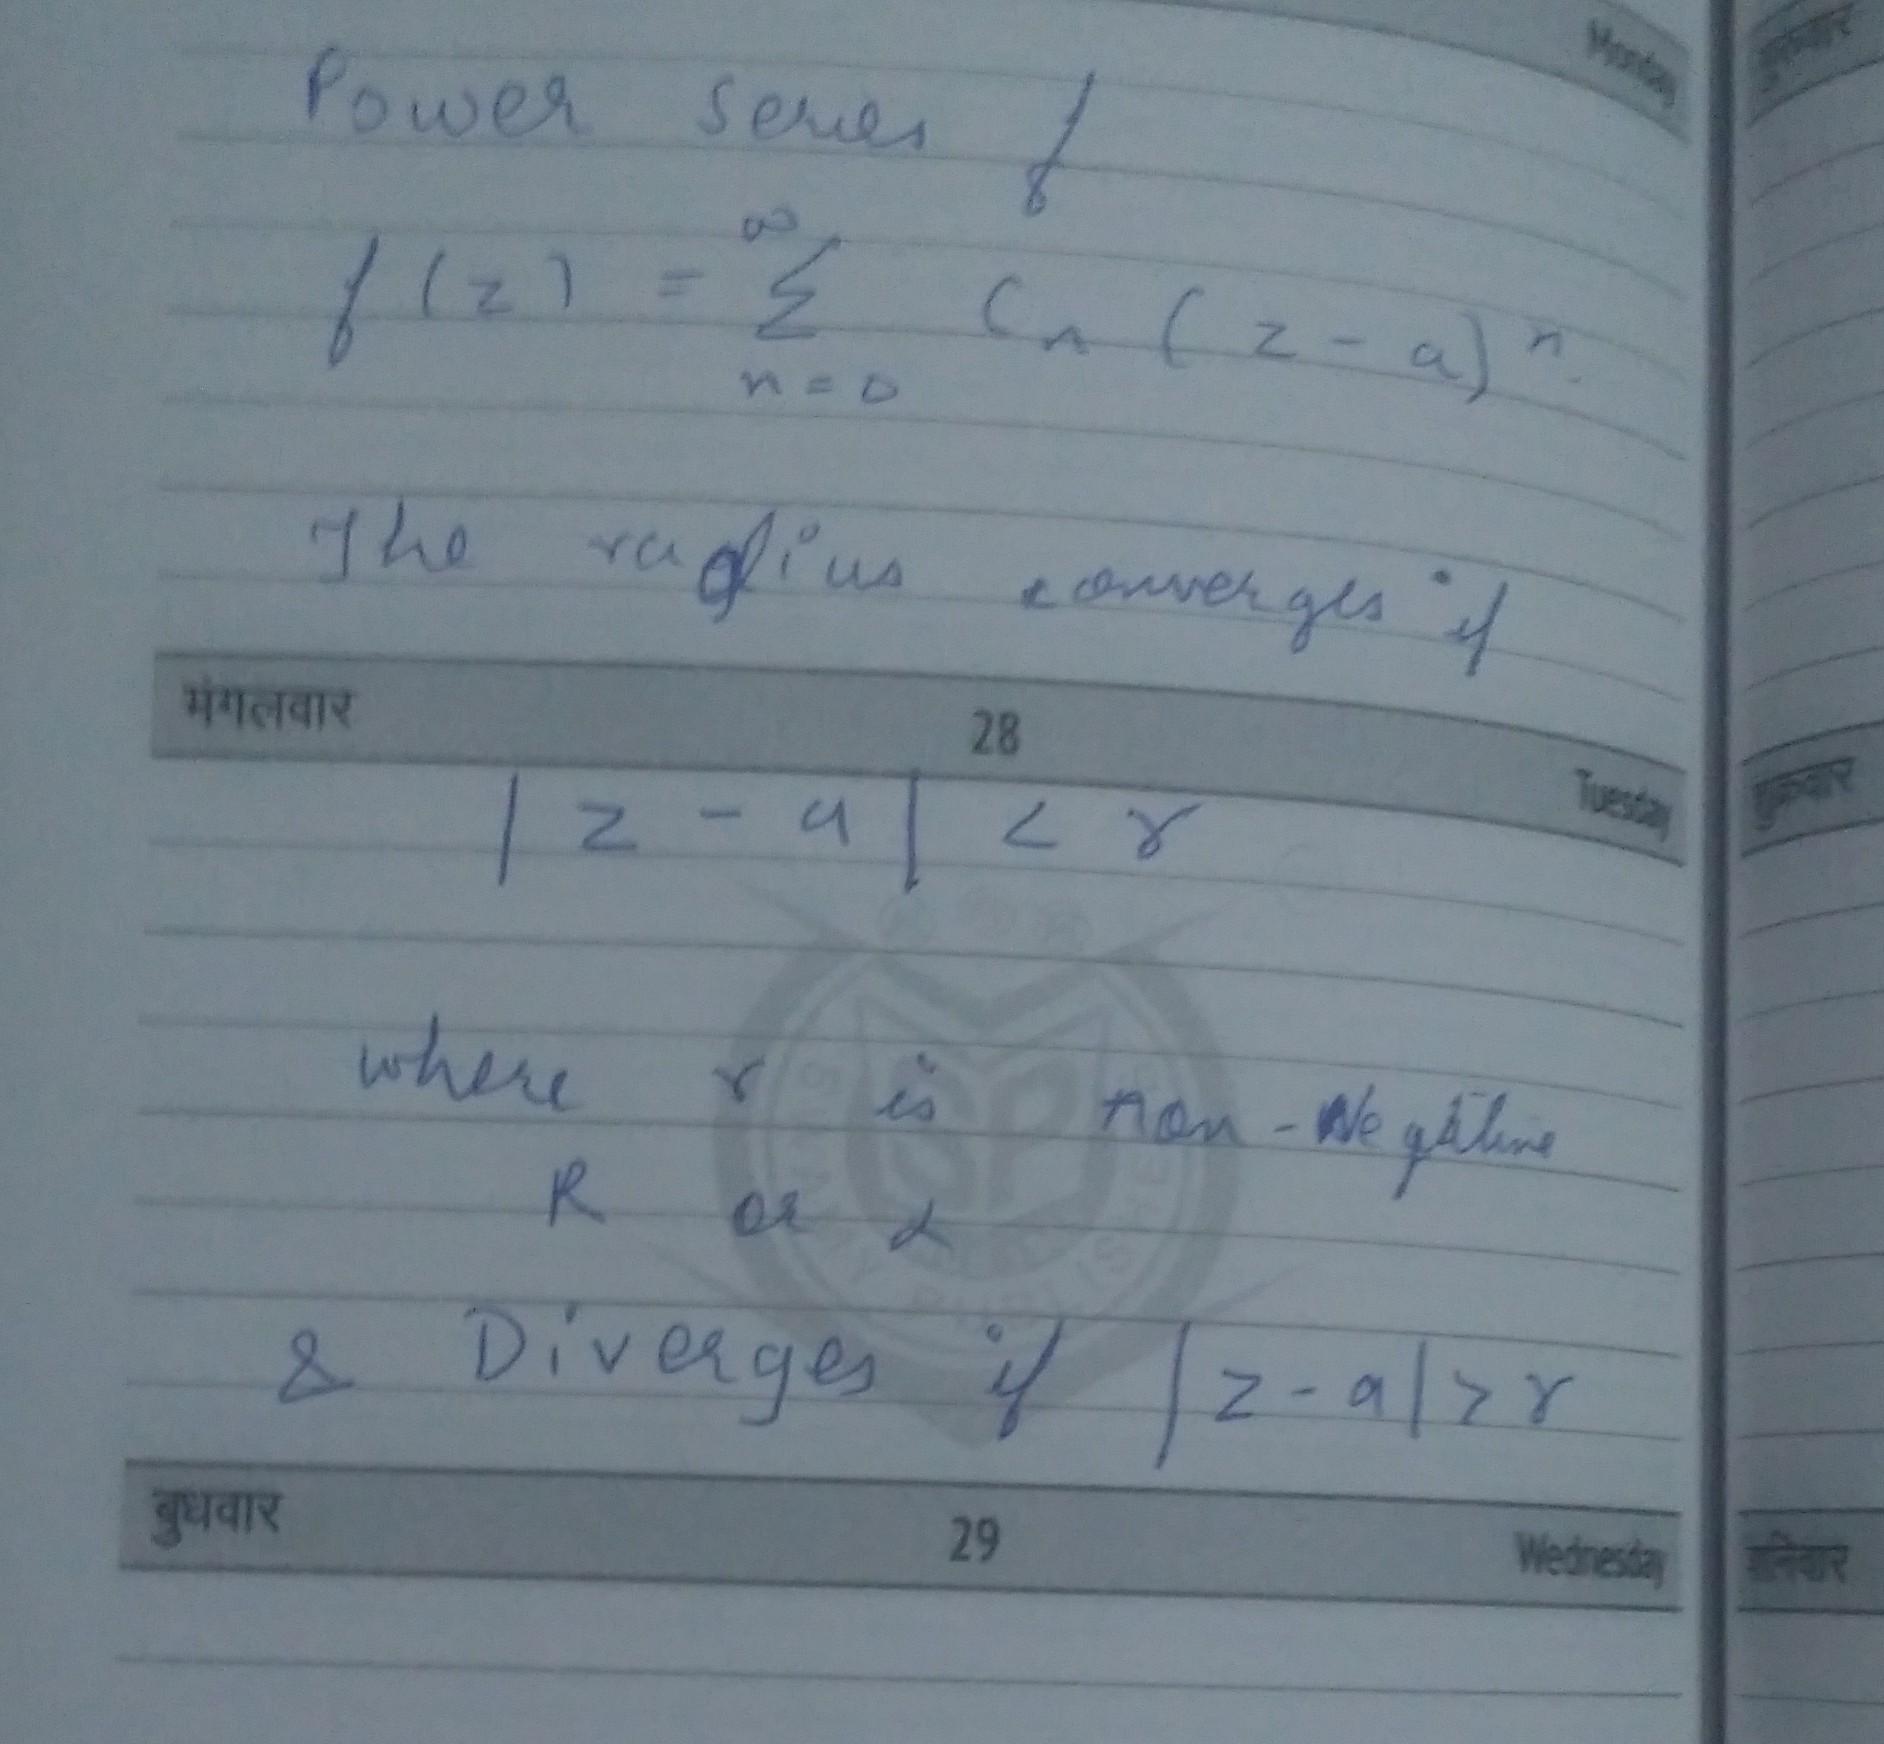 Monday
Power series f
f(z) = ∞ Σ n=0 Cn (z-a)^n.
The radius converges if
मंगलवार 28 Tuesday
|z-a| < r
where r is non-Negative
R or α
& Diverges if |z-a| > r
बुधवार 29 Wednesday
शुक्रवार
शनिवार